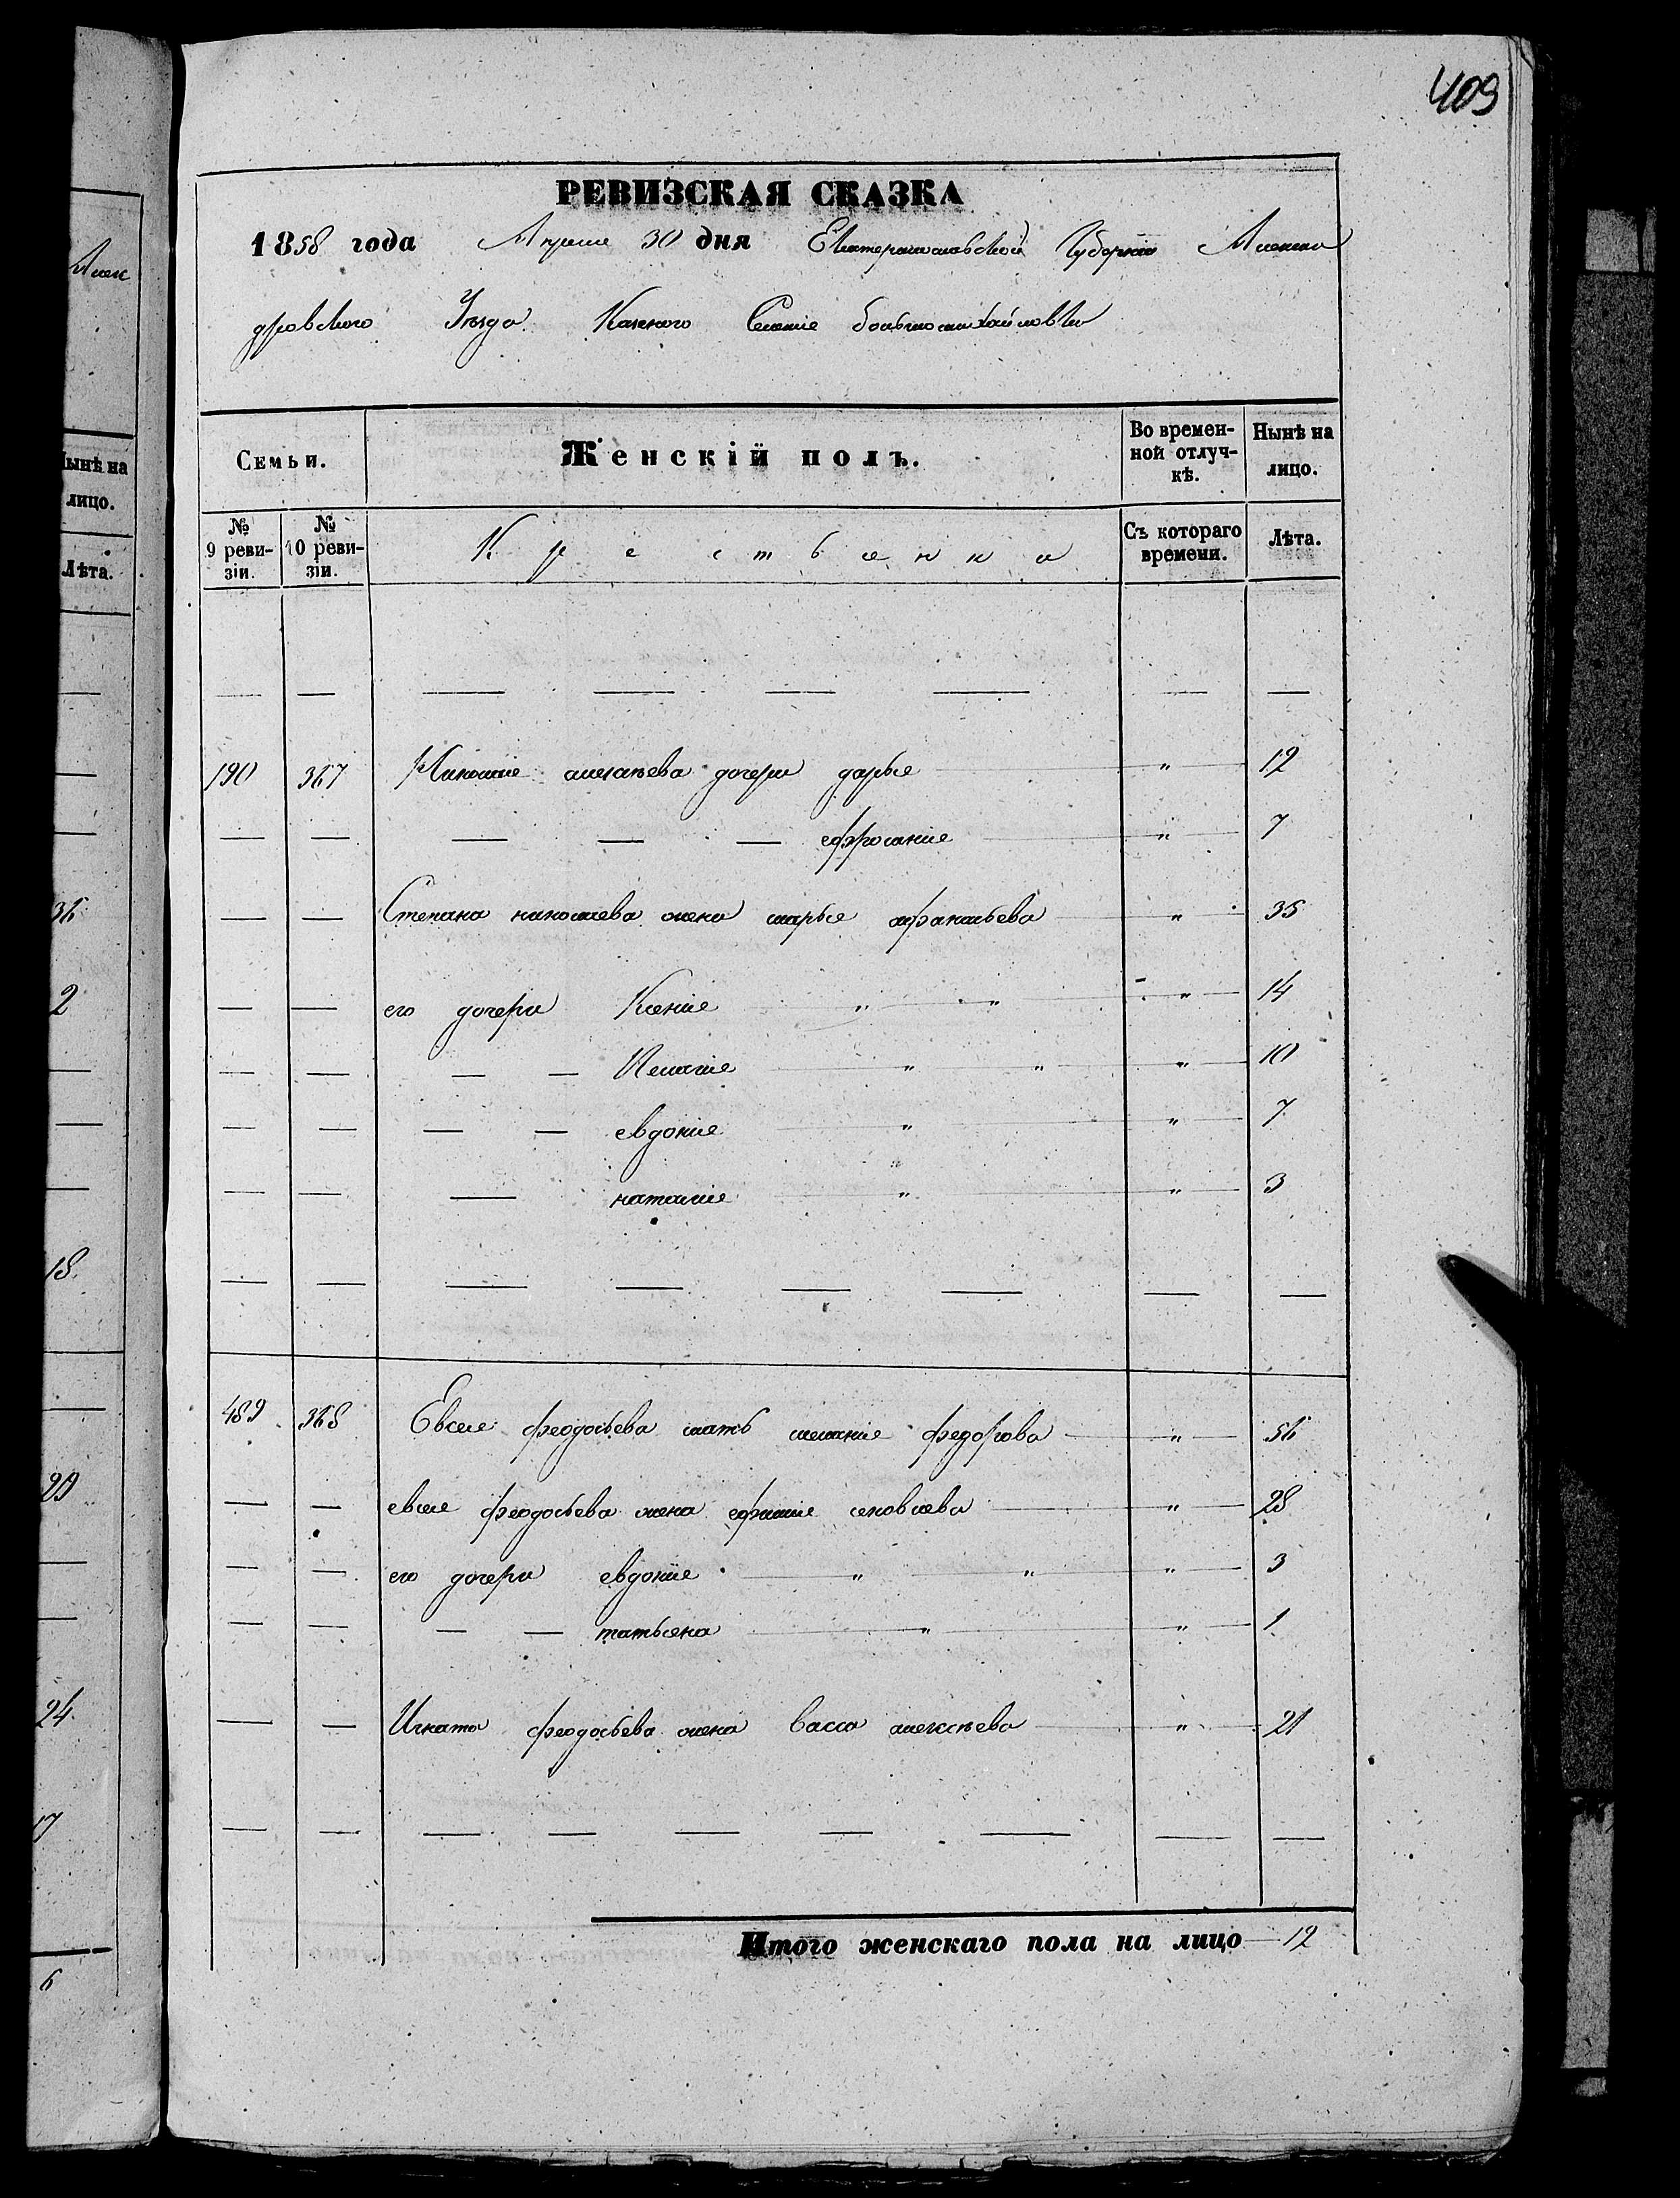 409
РЕВИЗСКАЯ СКАЗКА
1858 года Апреля 30 дня Екатеринославской Губернии Алексан
дровского Уезда Казенного Селения больше михайловки
Семьи. Женскій полъ. Во времен-ной отлуч-кѣ. Нынѣ на лицо.
№ 9 реви-зіи. № 10 реви-зіи. Крестьянка Съ котораго времени. Лѣта.
— — — — — — — —
190 367 алексѣева дочери дарья — " — 12
— — — — — ефросинія — " — 7
— — Степана николаева жена марья афанасьева — " — 35
— — его дочери Ксенія " " — " — 14
— — — — Пелагія " " — " — 10
— — — — евдокія " — " — 7
— — — наталія " — " — 3
— — — — — — — —
489 368 Евсея феодосьева мать меланія федорова — " — 56
— — евсея феодосьева жена ефимія — " — 28
— — его дочери евдокія " " — " — 3
— — — — татьяна " — " — 1
— — Игната феодосьева жена васса алексѣева — " — 21
— — — — — — — — —
Итого женскаго пола на лицо — 12
Алек
Нынѣ на
лицо.
Лѣта.
36
2
18.
29
24.
17
6